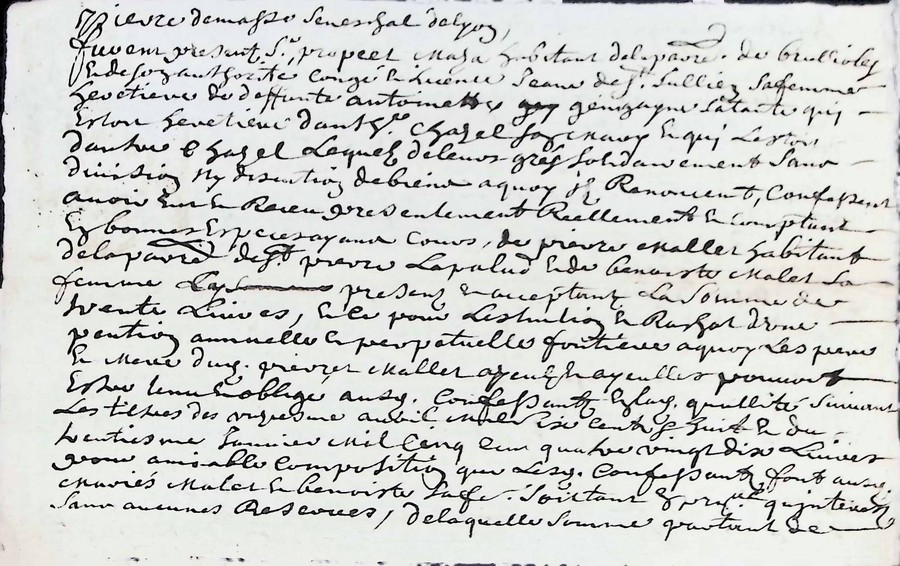 Pierre demasso Seneschal delyon,
furent present Sr. propect Maza habitant delaparre. de brullioles
Et de son authorite Conge Et Licence Jeane de St. Sullien Safemme
heretiere de deffunte antoinette gonzagne Sa tante qui
Estoit heretiere d'anth.e Chazel Son mary Et qui Lestoit
dautre Chazel Lequels deleurs gres Solidairement Sans
division ny discution debiens aquoy ils Renoncent, Confessent
avoir Eut Et Receu presentement Reellement Et comptant
En bonnes Especes ayant Cours, de pierre Mallet habitant
delaparre de St. pierre Lapalud Et de benoiste Malet Sa
femme presens Et acceptants La Somme de
trente Livres, Et ce pour Lestintion Et Rachat d'une
pention annuelle Et perpetuelle fontiere aquoy Les pere
Et Mere dud. pierre Mallet ayeul Et ayeulles pouvoit
Estre tenu Et oblige ausd. Confessants En lad. quallite Suivant
Les tiltres des vingtiesme avril Mil Six cents huit Et du
trentiesme Janvier Mil Cinq cent quatre vingt dix Livres
pour amiable Composition que Lesd. Confessants font ausd.
Maries Malet Et benoiste
Sans aucunes Reserves, delaquelle Somme partant de